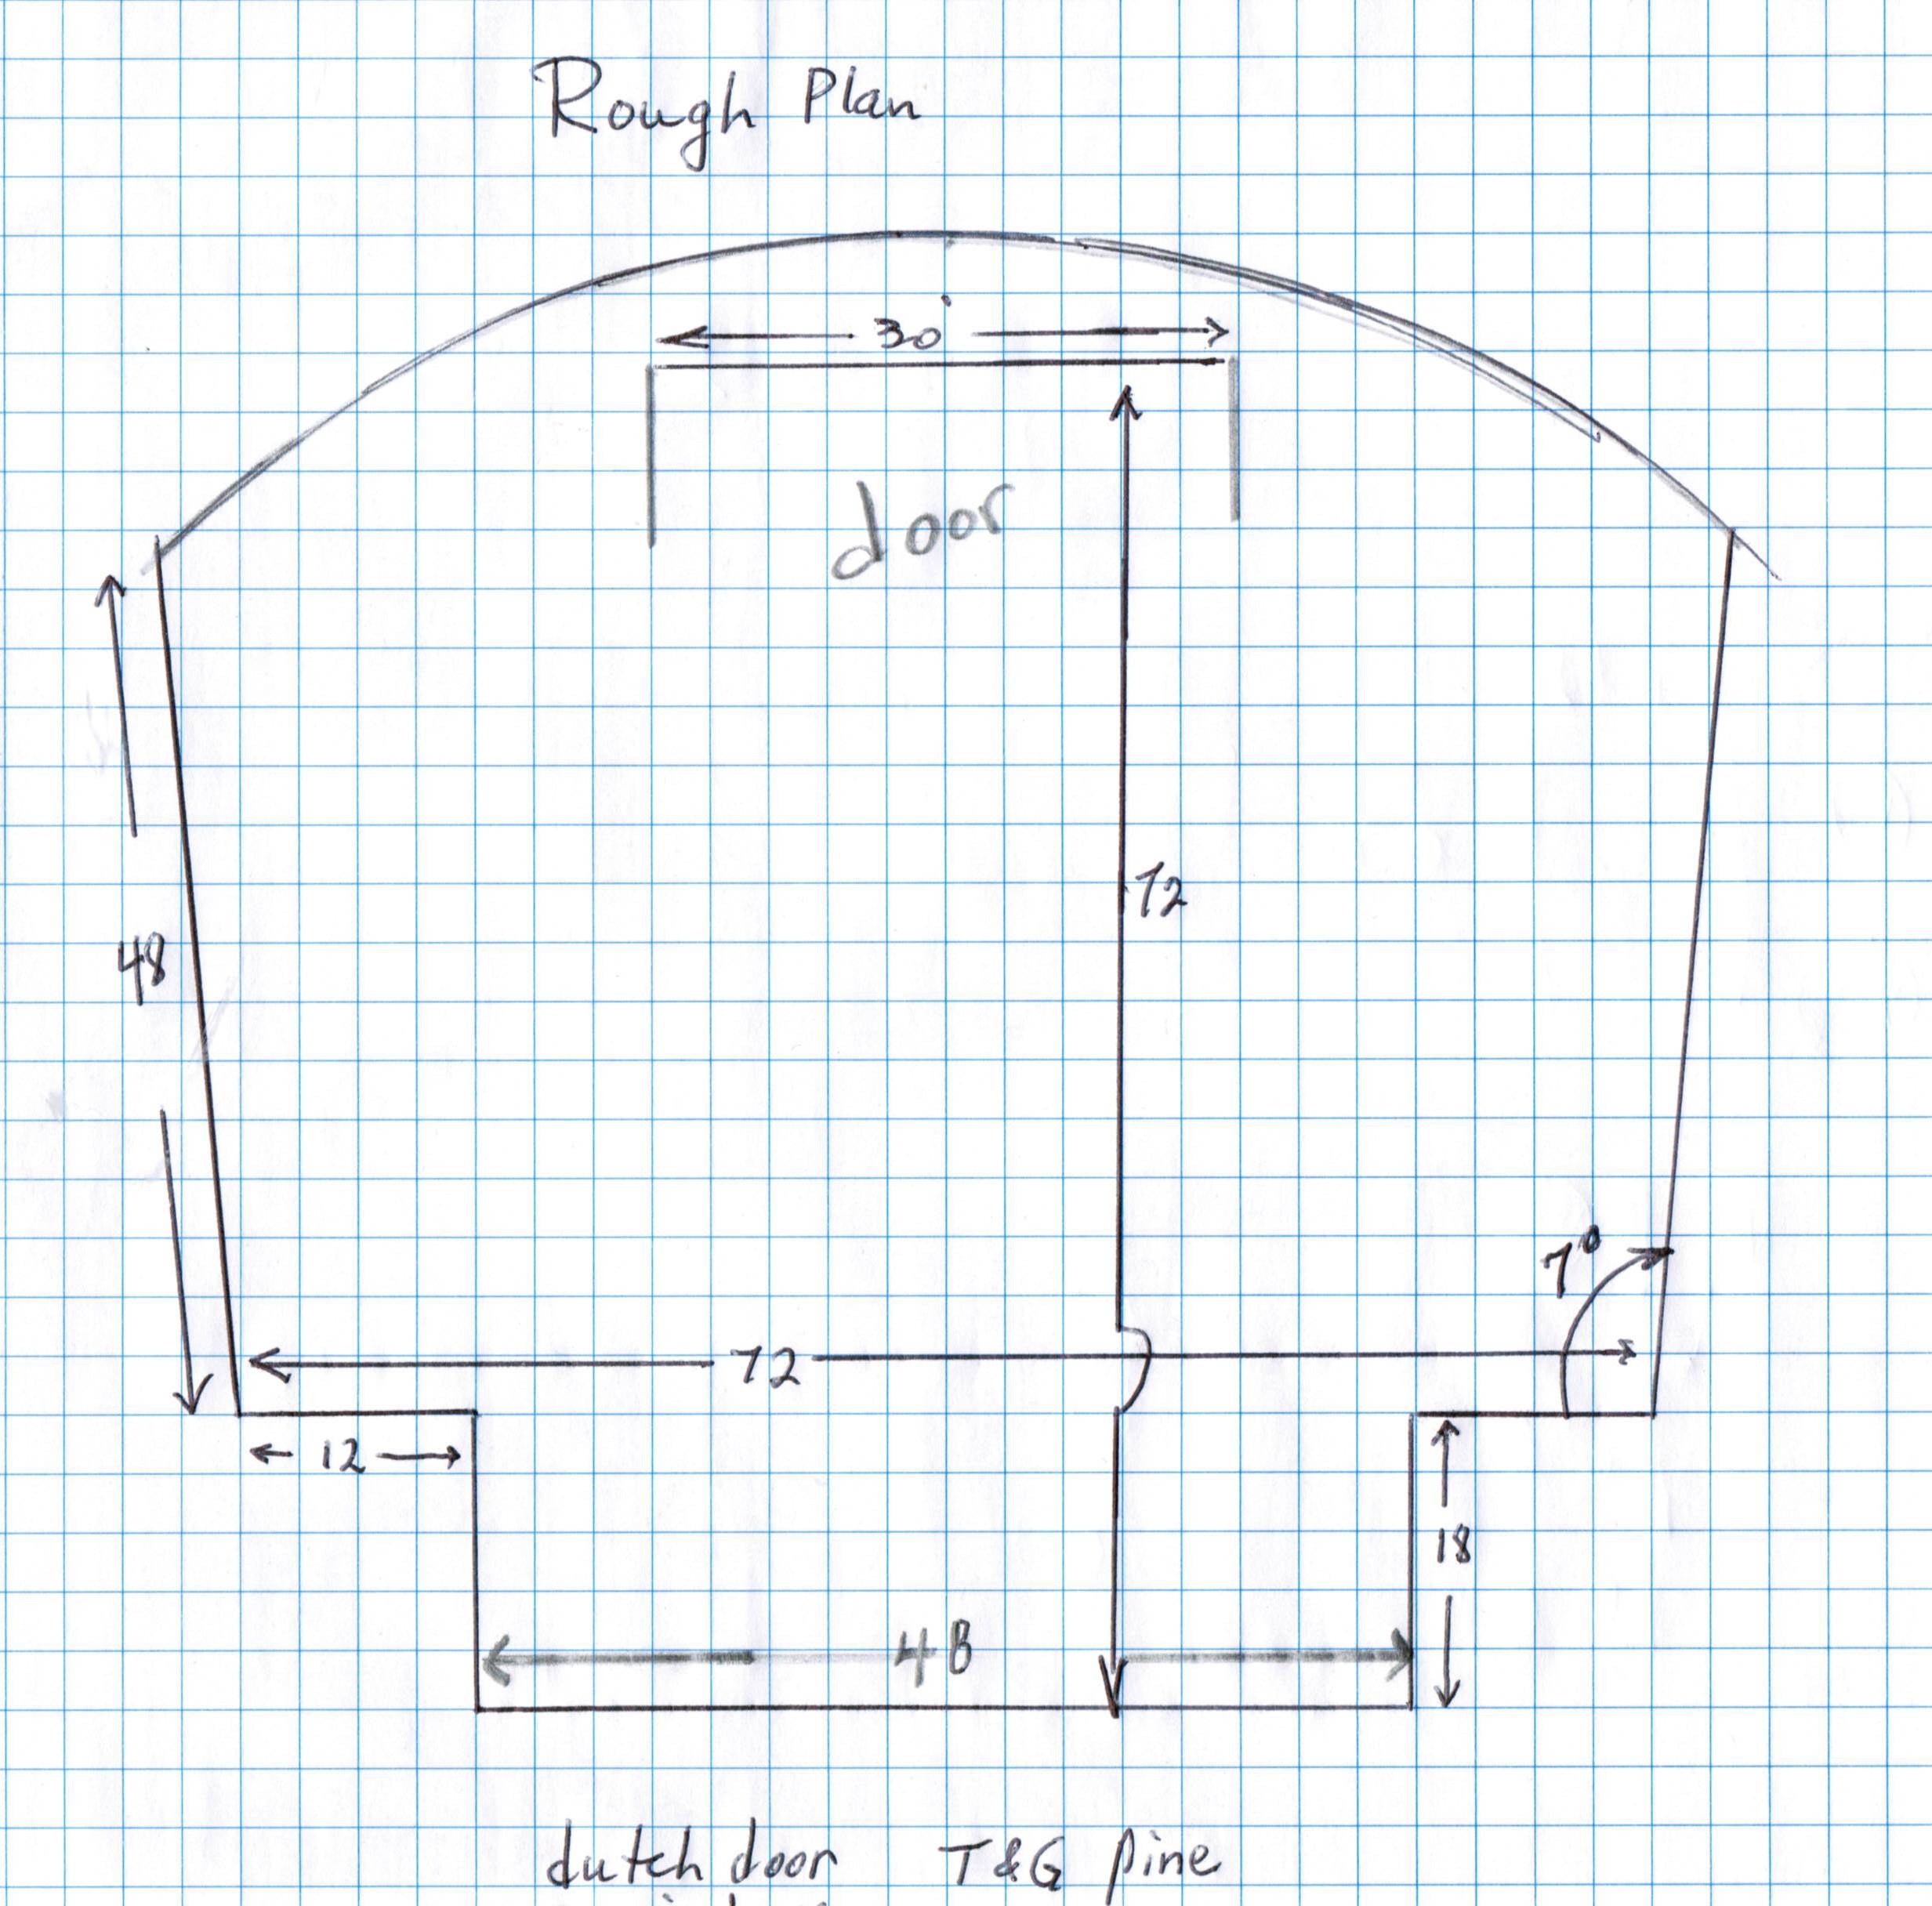 Rough Plan
30
door
72
48
7°
72
12
18
48
dutch door T&G pine